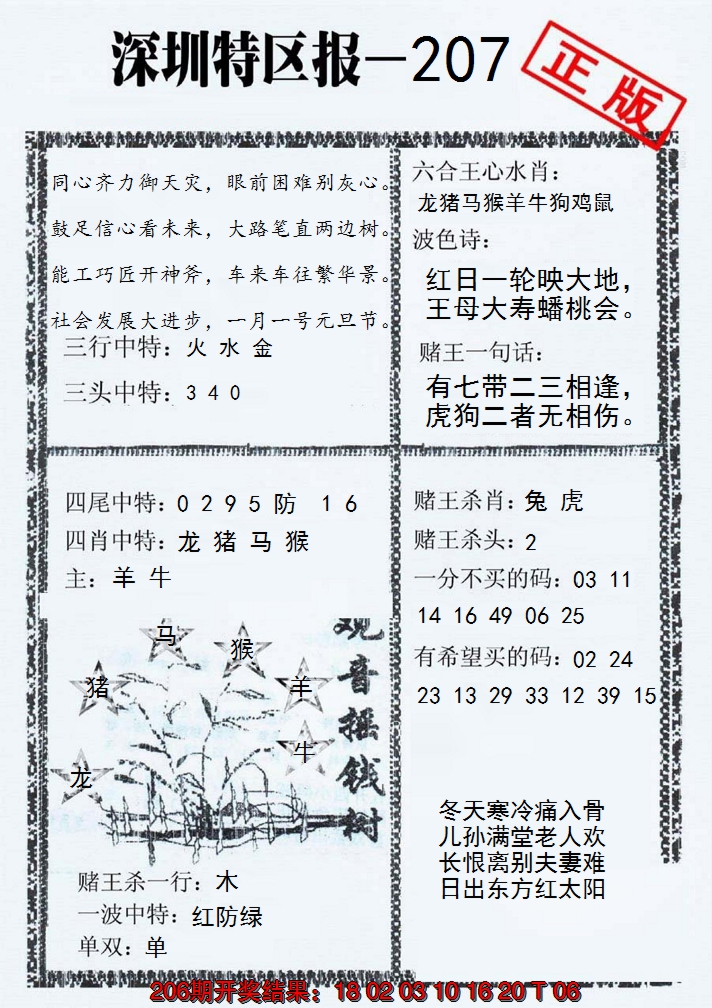 深圳特区报-207
正版
同心齐力御天灾，眼前困难别灰心。
鼓足信心看未来，大路笔直两边树。
能工巧匠开神斧，车来车往繁华景。
社会发展大进步，一月一号元旦节。
三行中特：火 水 金
三头中特：3 4 0
六合王心水肖：
龙猪马猴羊牛狗鸡鼠
波色诗：
红日一轮映大地，
王母大寿蟠桃会。
赌王一句话：
有七带二三相逢，
虎狗二者无相伤。
四尾中特：0 2 9 5 防 1 6
四肖中特：龙 猪 马 猴
主：羊 牛
马
猴
猪
羊
牛
龙
观音摇钱树
赌王杀一行：木
一波中特：红防绿
单双：单
赌王杀肖：兔 虎
赌王杀头：2
一分不买的码：03 11
14 16 49 06 25
有希望买的码：02 24
23 13 29 33 12 39 15
冬天寒冷痛入骨
儿孙满堂老人欢
长恨离别夫妻难
日出东方红太阳
206期开奖结果：18 02 03 10 16 20 T 06